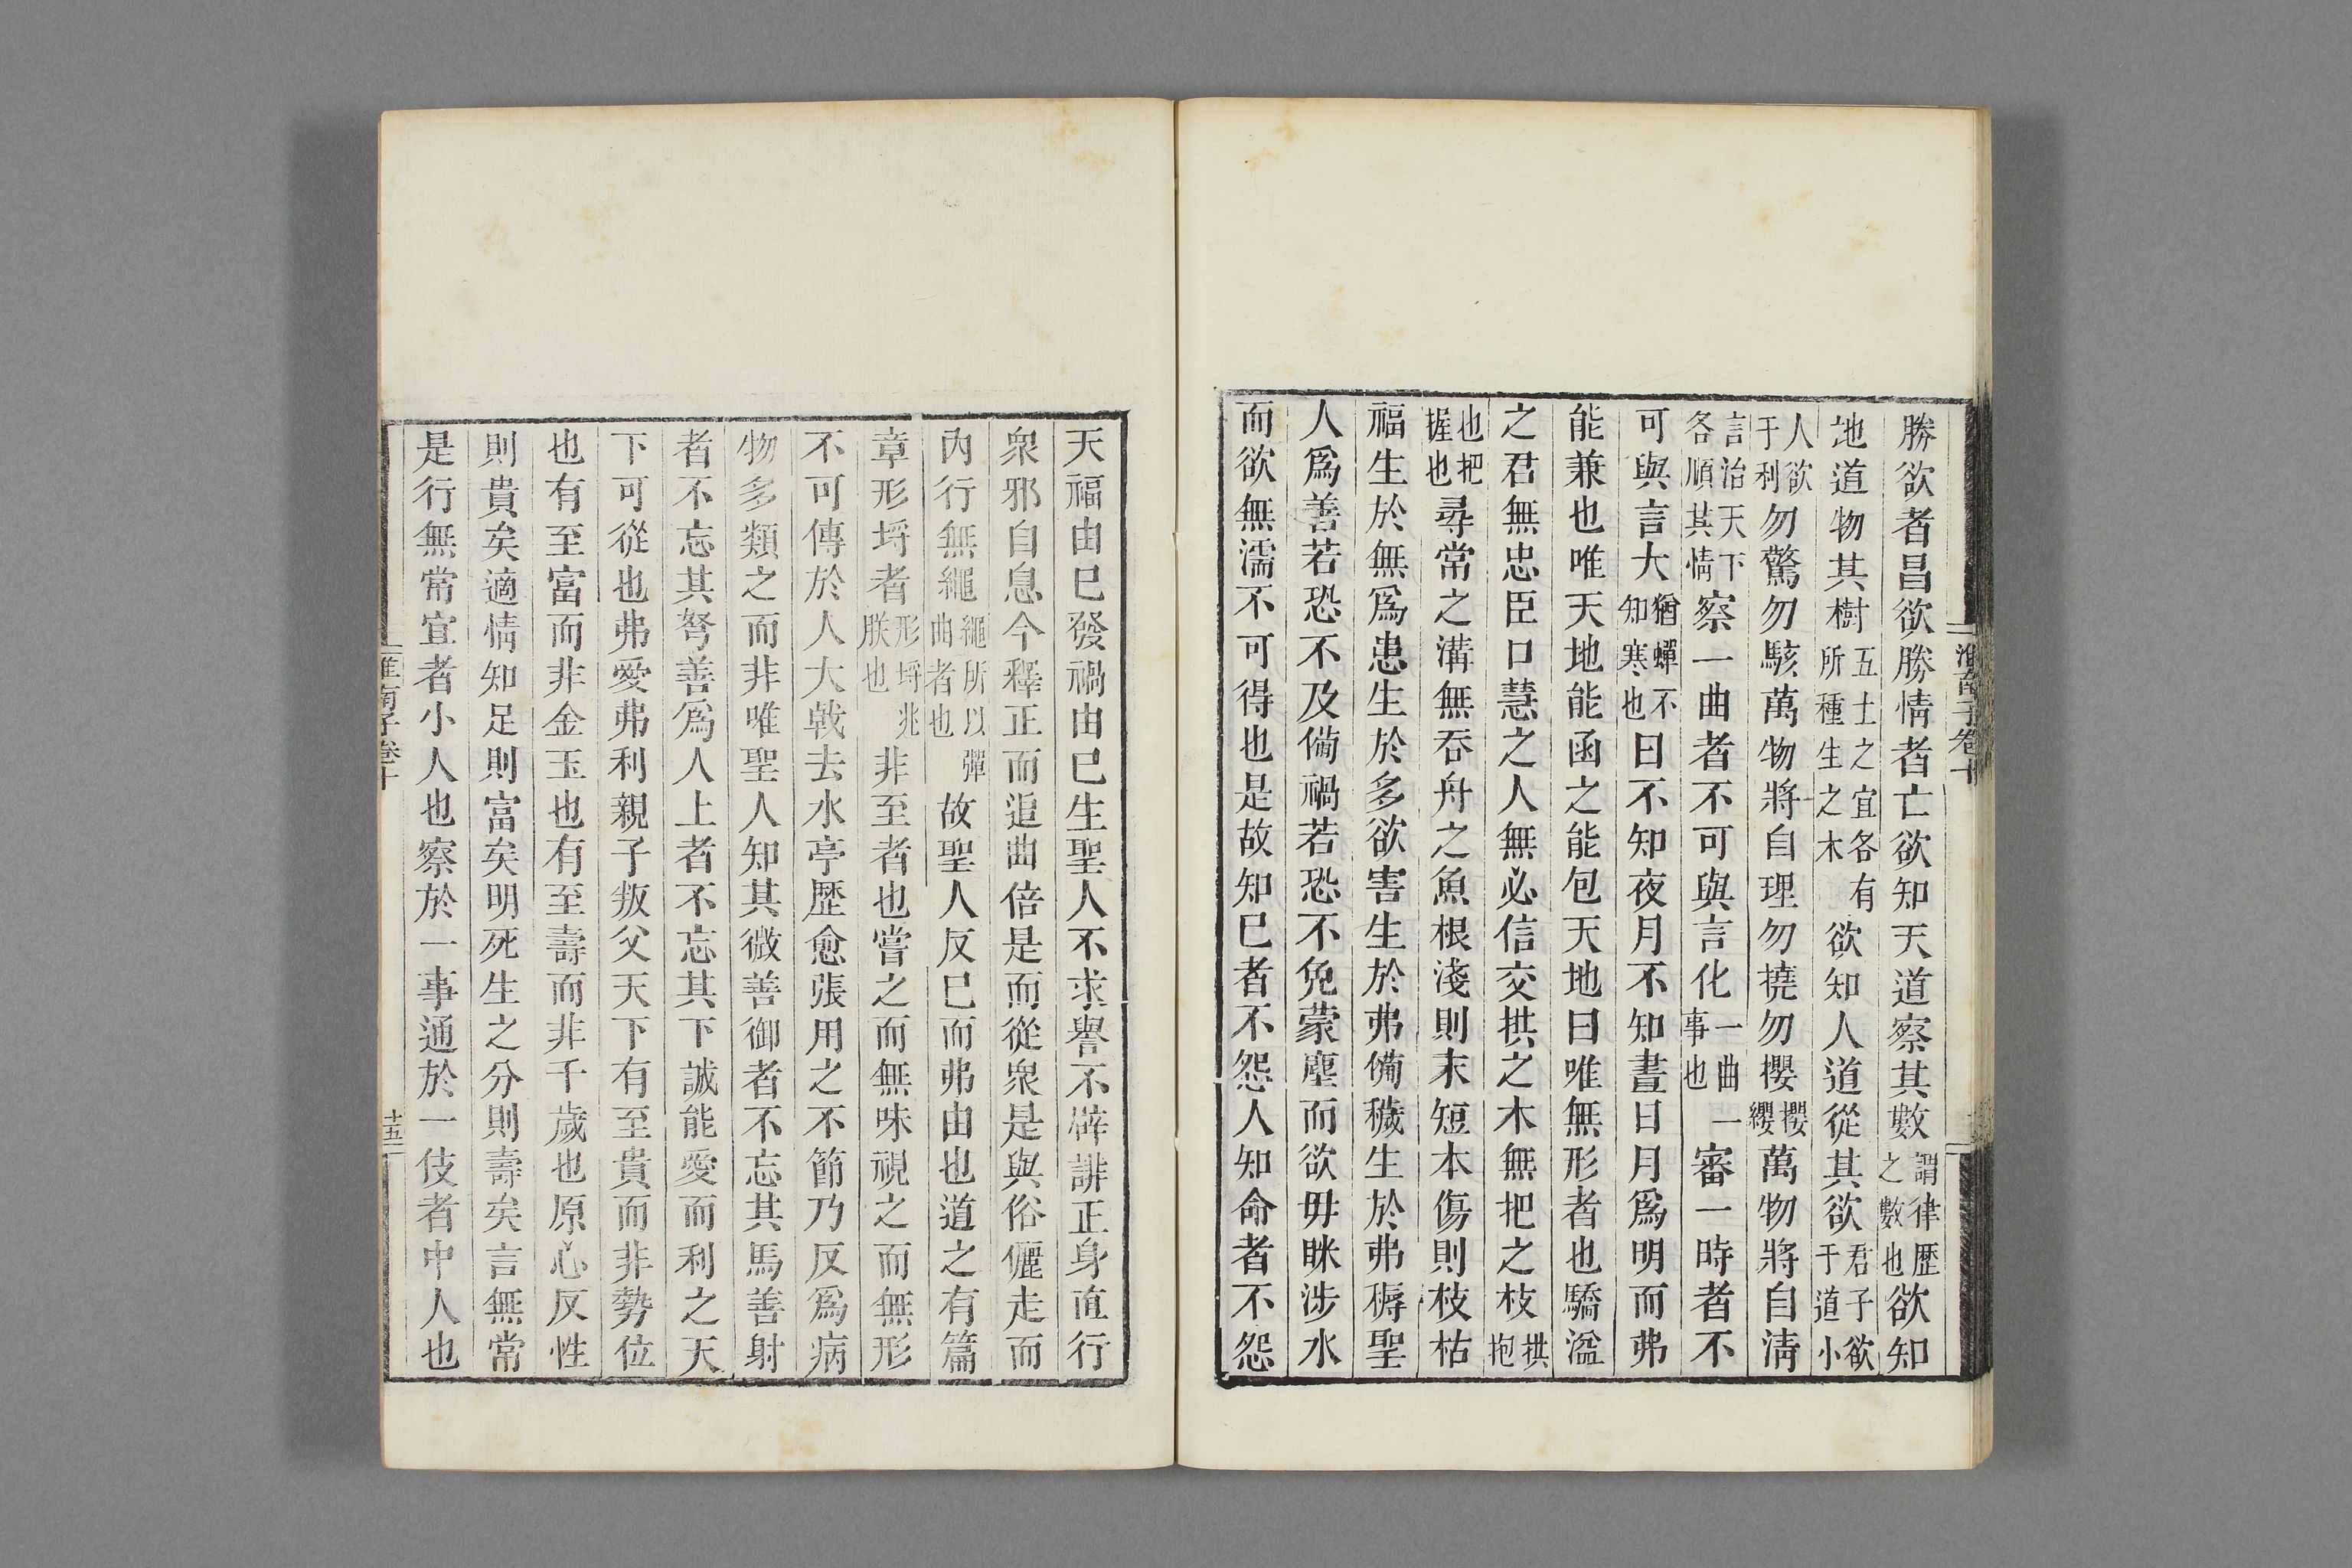 勝欲者昌欲勝情者亡欲知天道察其數謂律歷之數也欲知
地道物其樹五土之宜各有所種生之木欲知人道從其欲君子欲于道小
人欲于利勿驚勿駭萬物將自理勿撓勿攖攖纓萬物將自清
言治天下各順其情察一曲者不可與言化一曲一事也審一時者不
可與言大猶蟬不知寒也日不知夜月不知晝日月爲明而弗
能兼也唯天地能函之能包天地曰唯無形者也驕溢
之君無忠臣口慧之人無必信交拱之木無把之枝拱抱
也把握也尋常之溝無吞舟之魚根淺則末短本傷則枝枯
福生於無爲患生於多欲害生於弗備穢生於弗耨聖
人爲善若恐不及備禍若恐不免蒙塵而欲毋眯涉水
而欲無濡不可得也是故知巳者不怨人知命者不怨
淮南子卷十
天福由巳發禍由巳生聖人不求譽不辟誹正身直行
衆邪自息今釋正而追曲倍是而從衆是與俗儷走而
內行無繩繩所以彈曲者也故聖人反巳而弗由也道之有篇
章形埒者形埒兆朕也非至者也嘗之而無味視之而無形
不可傳於人大戟去水亭歷愈張用之不節乃反爲病
物多類之而非唯聖人知其微善御者不忘其馬善射
者不忘其弩善爲人上者不忘其下誠能愛而利之天
下可從也弗愛弗利親子叛父天下有至貴而非勢位
也有至富而非金玉也有至壽而非千歲也原心反性
則貴矣適情知足則富矣明死生之分則壽矣言無常
是行無常宜者小人也察於一事通於一伎者中人也
淮南子卷十
十五